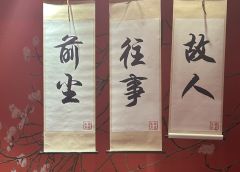 前尘
往事
故人